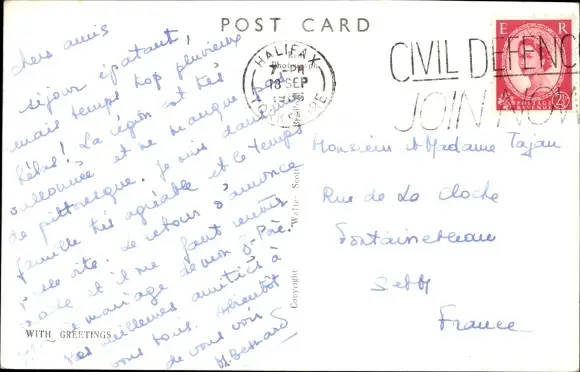 POST CARD
chers amis
séjour épatant,
mais temps trop pluvieux
hélas! La région est très
et ne manque pas
de pittoresque. Je suis dans une
famille très agréable et le temps
passe vite. Le retour s'annonce
et il me faut
mariage de mon
mes meilleures amitiés à
vous tous. A bientôt
de vous voir
M. Besnard
WITH GREETINGS
Copyright Walter Scott
Photograph
HALIFAX
7 PM
18 SEP
YORKSHIRE
CIVIL DEFENCE
JOIN NOW
E R
POSTAGE
REVENUE
2½
Monsieur et Madame Tajan
Rue de La Cloche
Fontainebleau
S et M
France